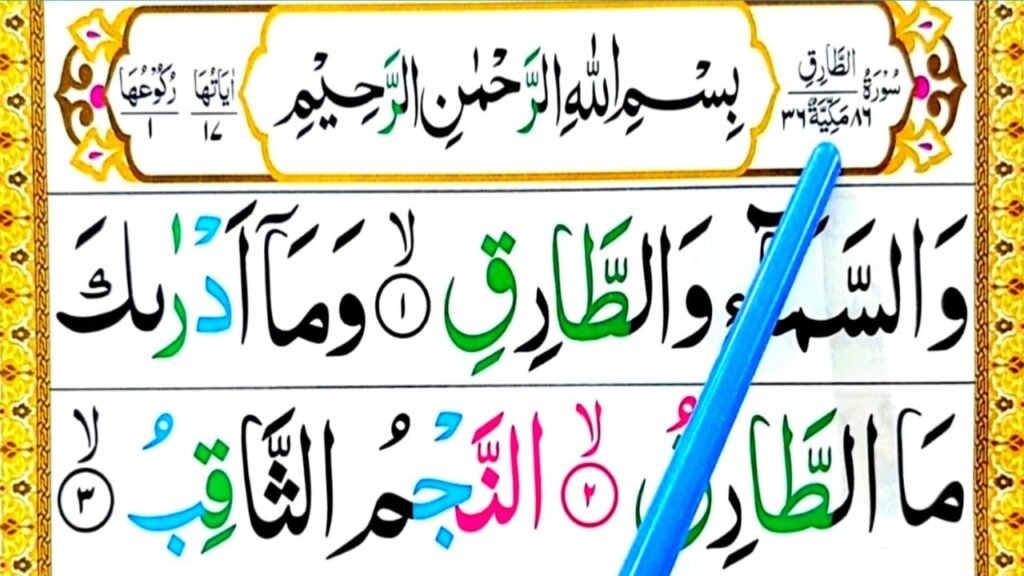 سُوْرَةُ الطَّارِقِ
٨٦ مَكِّيَّةٌ ٣٦
بِسْمِ اللّٰهِ الرَّحْمٰنِ الرَّحِيْمِ
اٰيَاتُهَا ١٧
رُكُوْعُهَا ١
وَالسَّمَآءِ وَالطَّارِقِ ۙ﴿١﴾ وَمَآ اَدْرٰىكَ
مَا الطَّارِقُ ۙ﴿٢﴾ النَّجْمُ الثَّاقِبُ ۙ﴿٣﴾